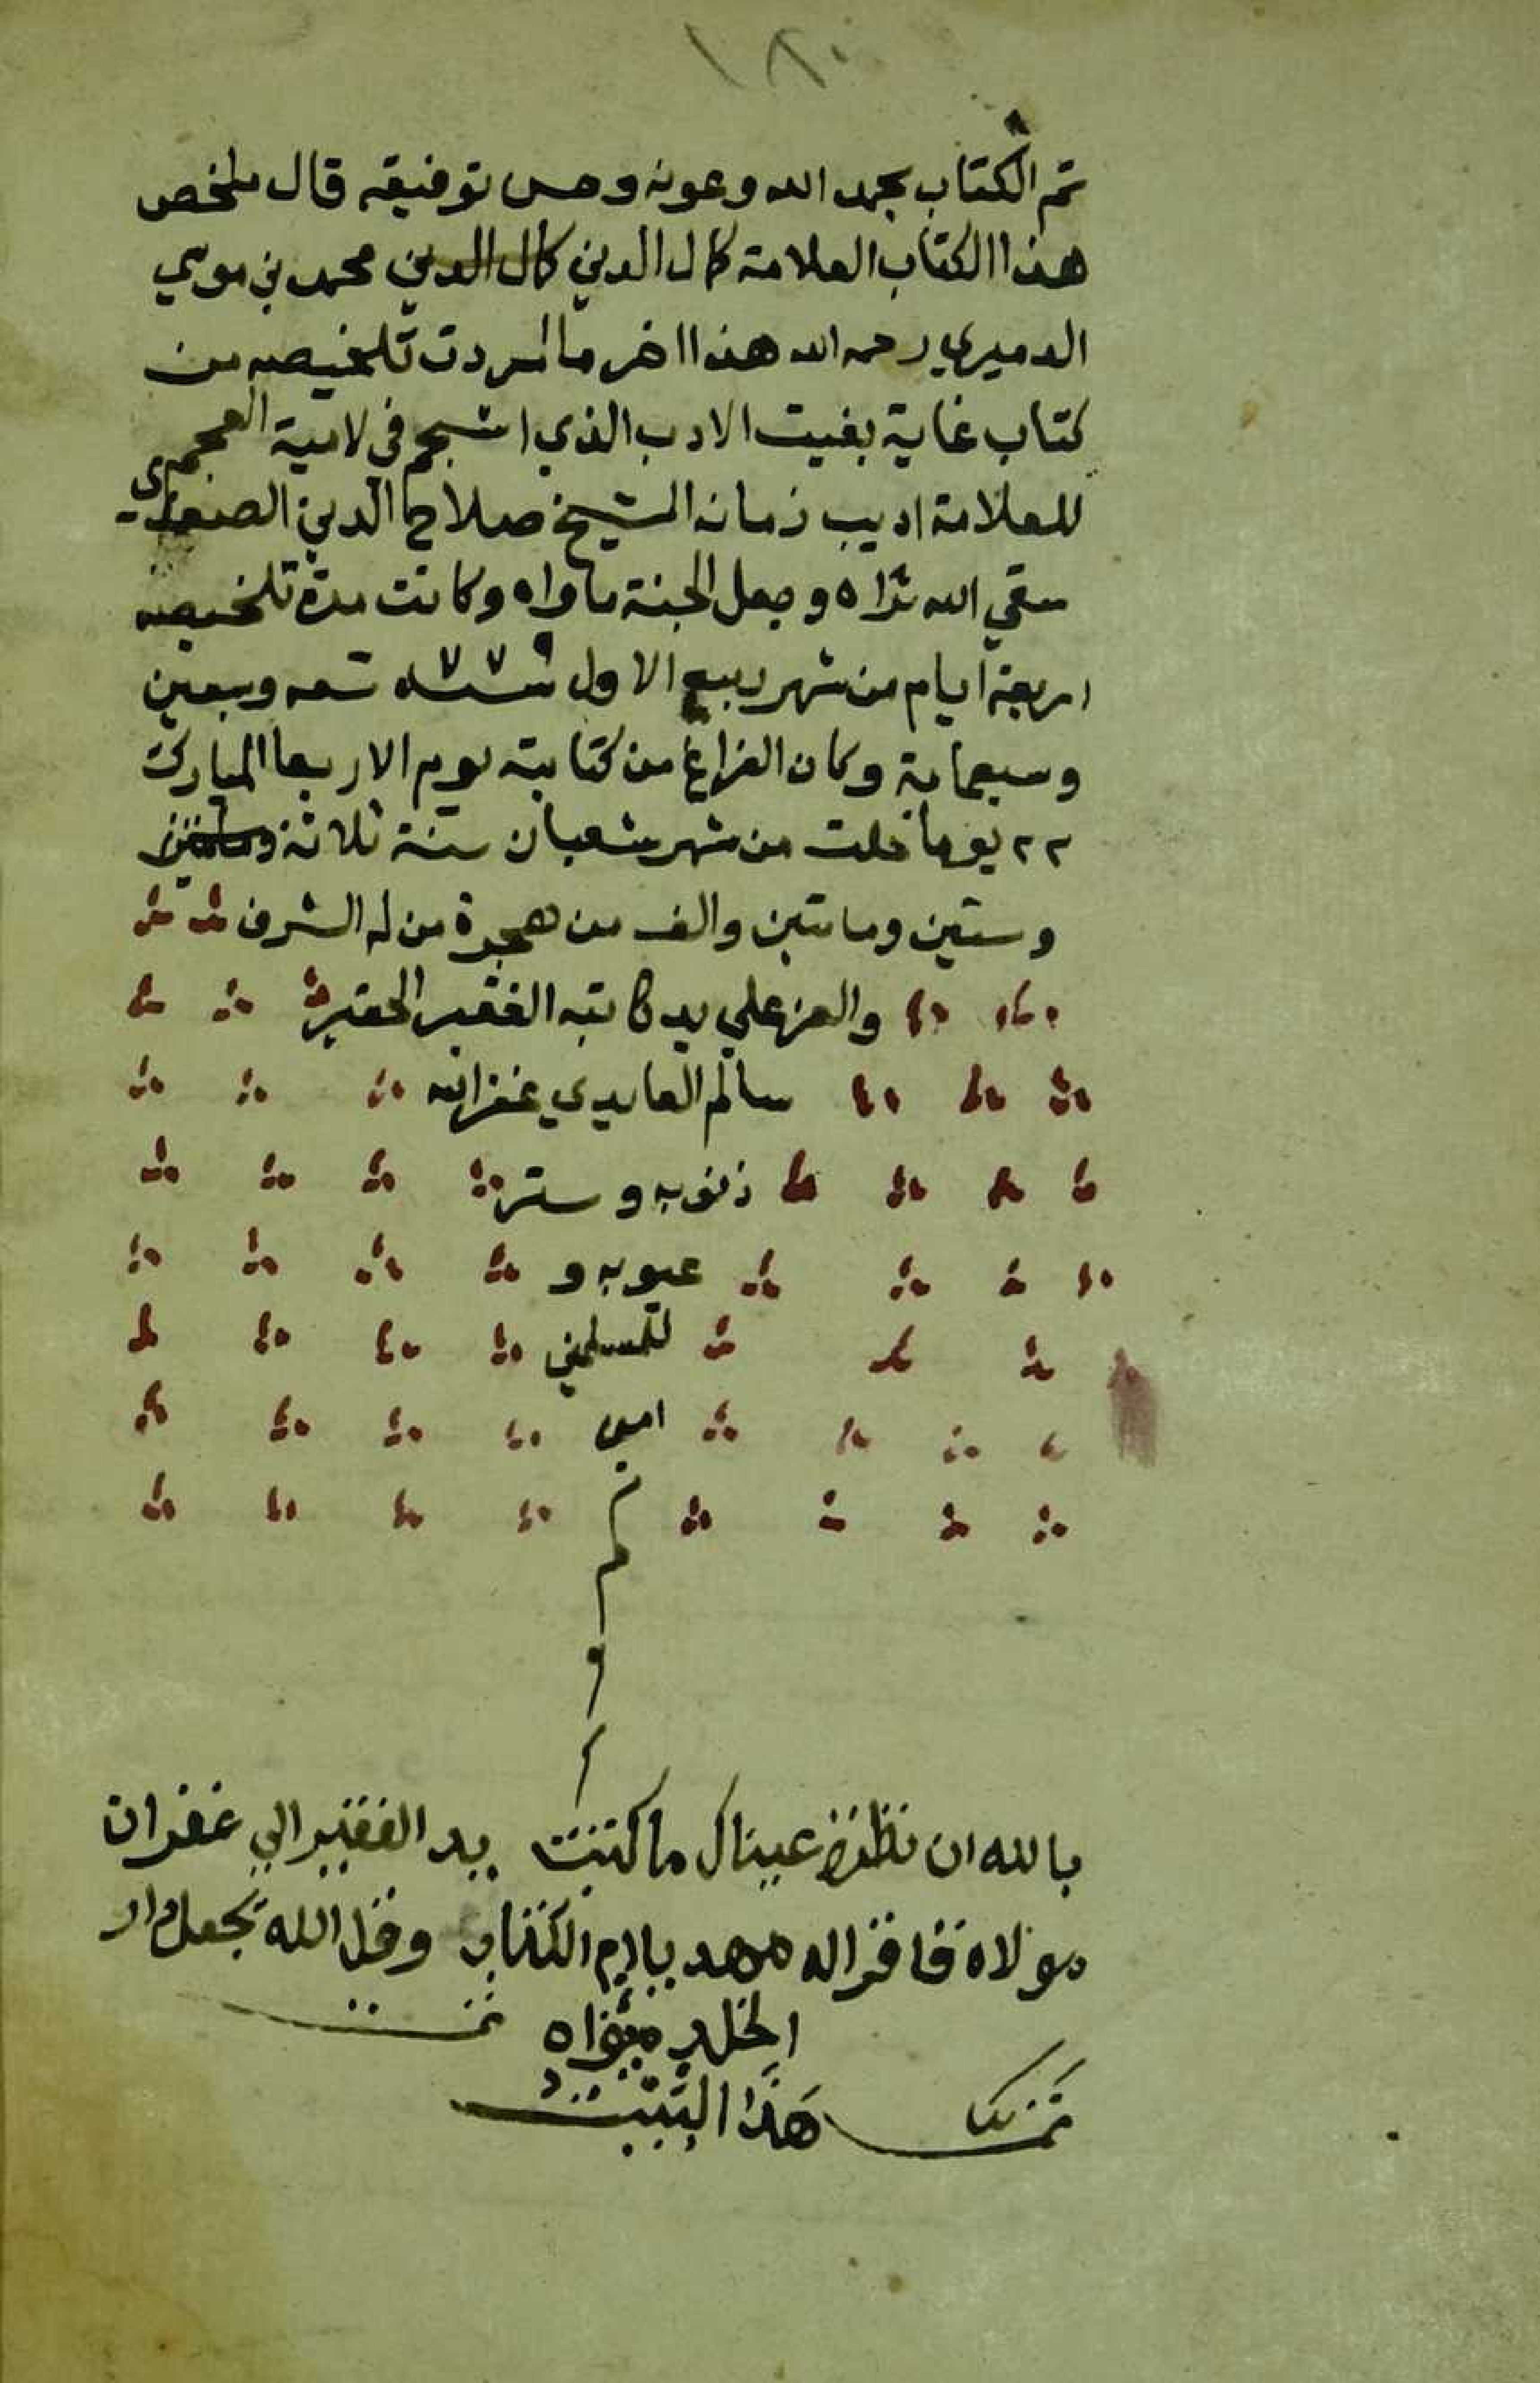 ١٨٠
تم الكتاب بحمد الله وعونه وحسن توفيقه قال ملخص
هذا الكتاب العلامة كمال الدين كمال الدين محمد بن موسي
الدميري رحمه الله هذا اخر ما اردت تلخيصه من
كتاب غاية بغيت الادب الذي انسجم في لامية العجم
للعلامة اديب زمانه الشيخ صلاح الدين الصفدي
سقي الله ثراه وجعل الجنة ماواه وكانت مدة تلخيصه
اربعة ايام من شهر ربيع الاول سنة ٧٧٩ تسعه وسبعين
وسبعماية وكان الفراغ من كتابته يوم الاربعا المبارك
٢٢ يوما خلت من شهر شعبان سنة ثلاثة
وستين وماتين والف من هجرة من له الشرف
والعز علي يد كاتبه الفقير الحقير
سالم العايدي غفر الله
ذنوبه وستر
عيوبه و
للمسلمين
امين
تم
بالله ان نظرت عيناك ما كتبت يد الفقير الي غفران
مولاه فاقرا له بام الكتاب وقل الله تجعل دار
الخلد مثواه تمت
تمت هذا البيت